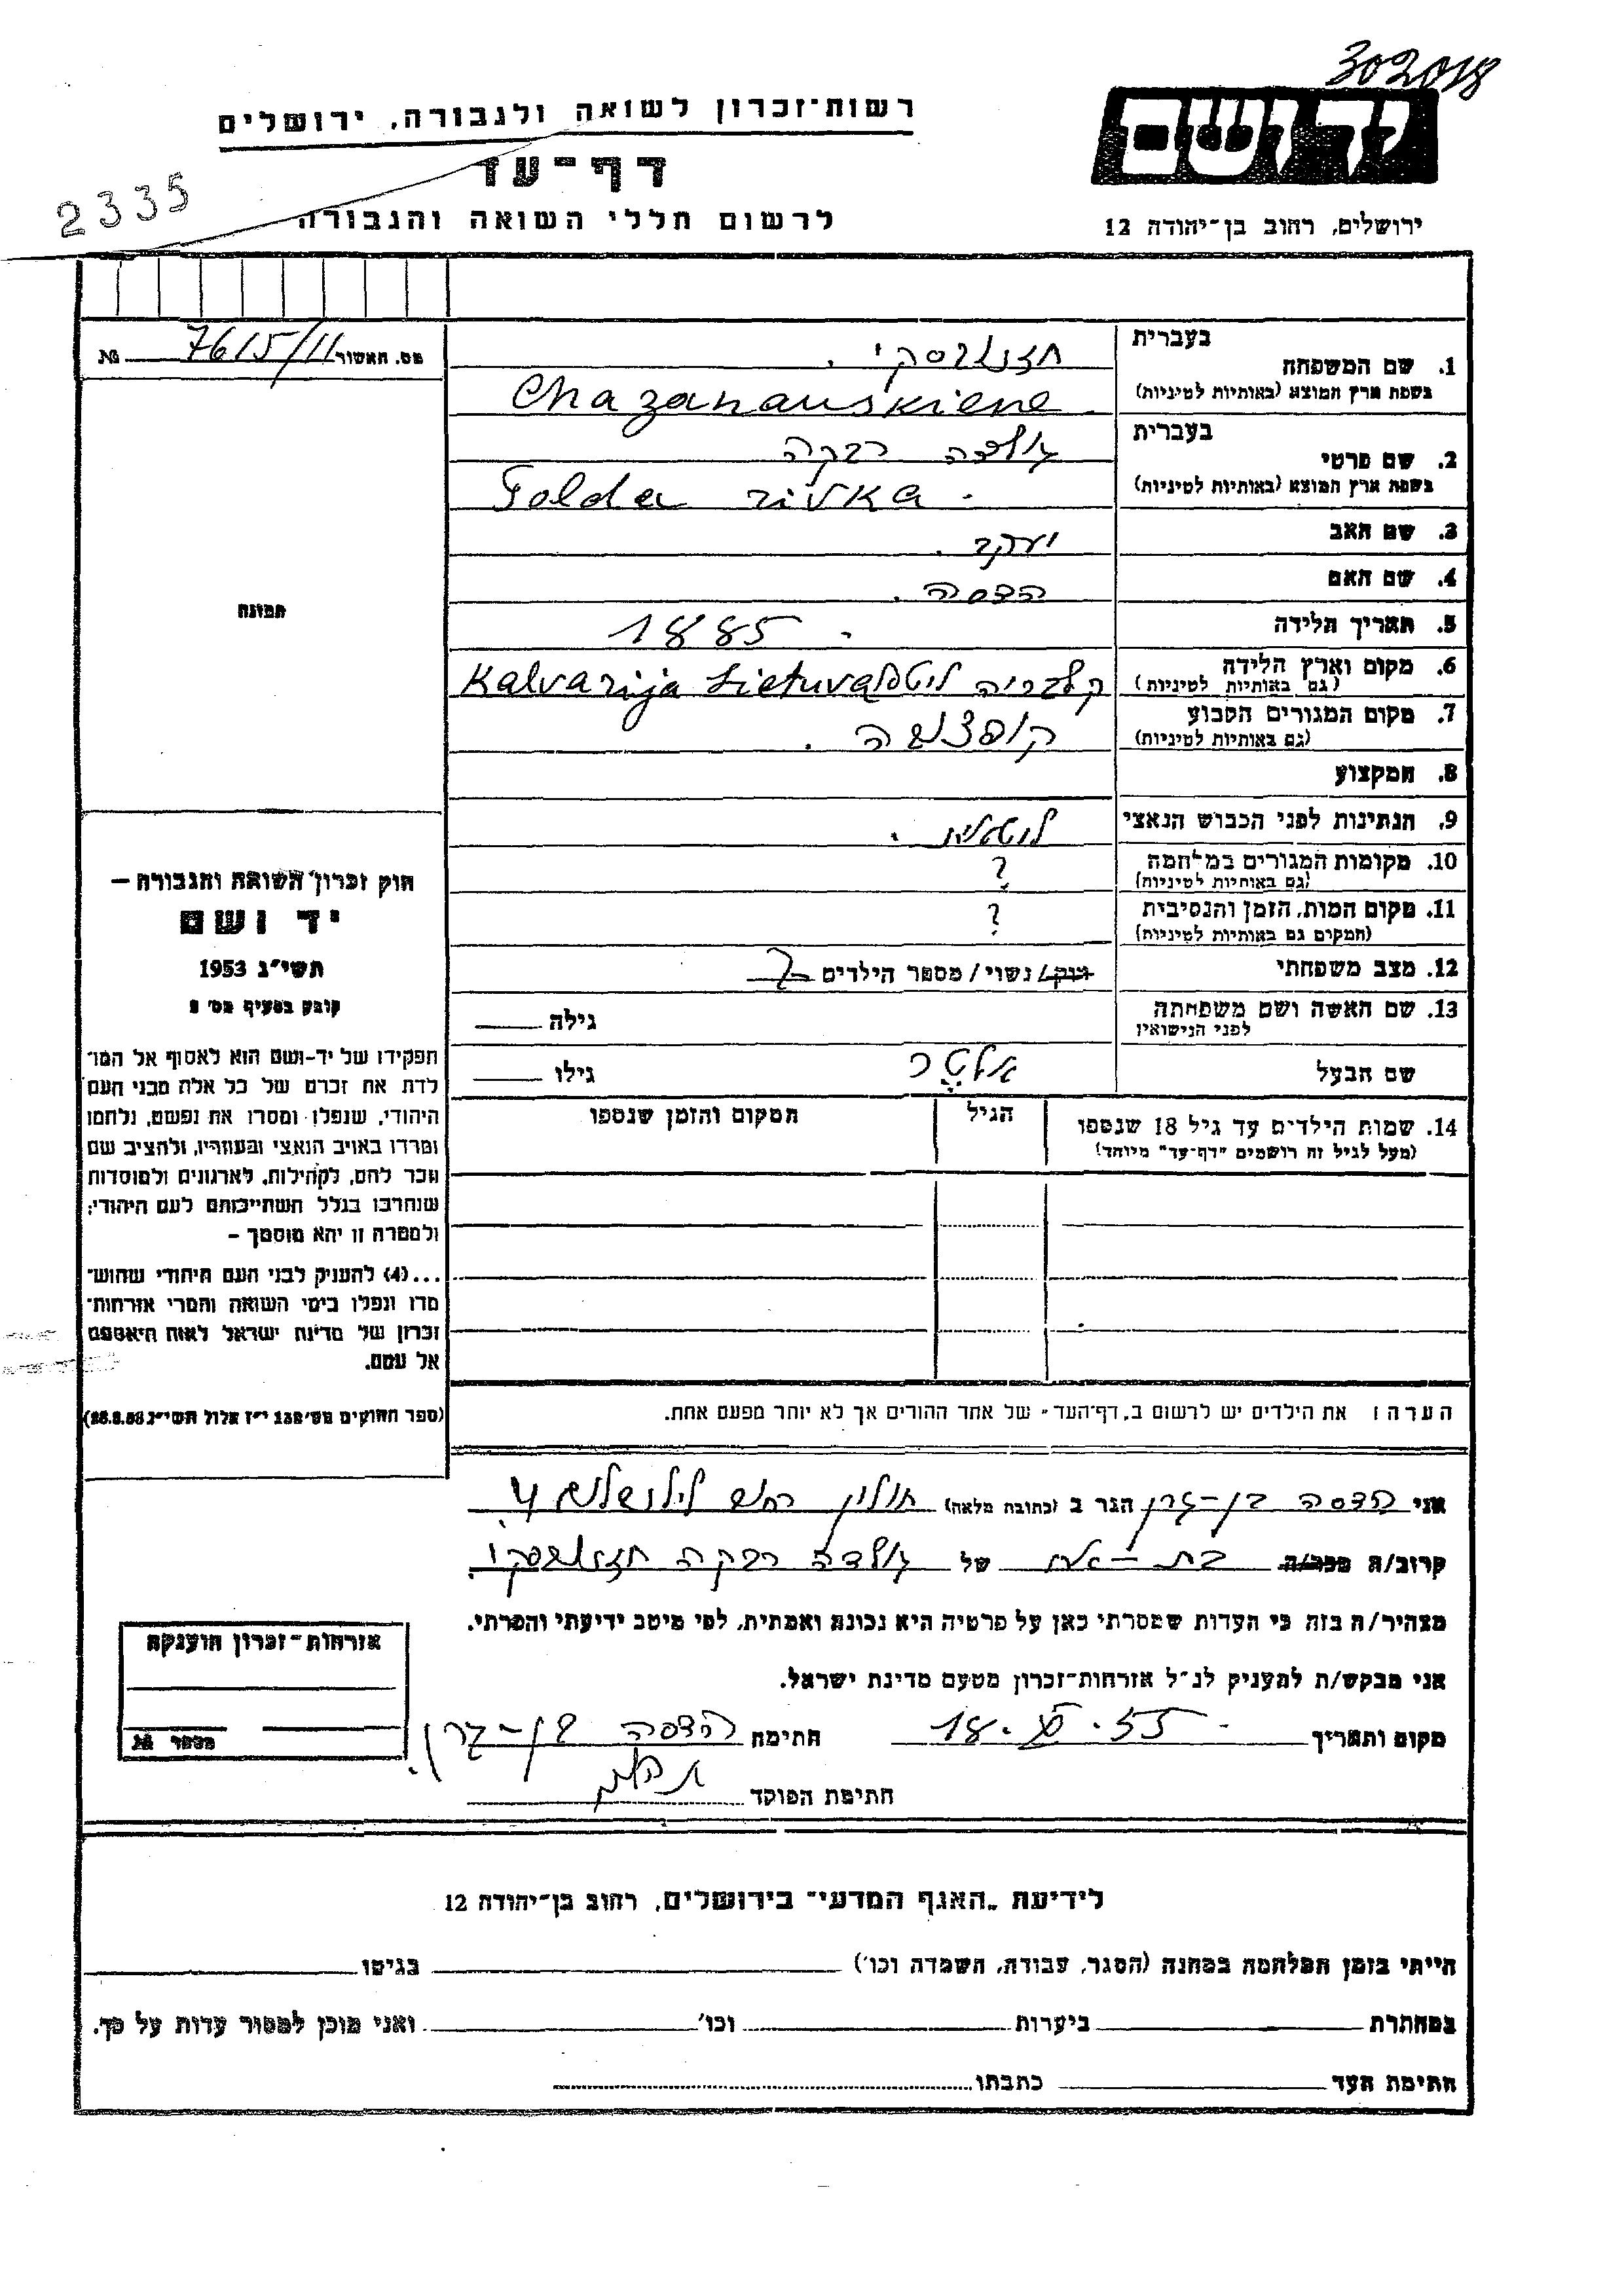 302018
יד ושם
ירושלים, רחוב בן־יהודה 12
רשות־זכרון לשואה ולגבורה, ירושלים
דף־עד
לרשום חללי השואה והגבורה
2335
מס. האשור 7615/11 №
1. שם המשפחה
בעברית
חזנובסקי.
בשפת ארץ המוצא (באותיות לטיניות)
Chazanauskiene.
2. שם פרטי
בעברית
גולדה רבקה
בשפת ארץ המוצא (באותיות לטיניות)
Golda rivka.
3. שם האב יעקב.
4. שם האם הדסה.
5. תאריך הלידה 1885.
6. מקום וארץ הלידה
(גם באותיות לטיניות)
Kalvarija Lietuva
7. מקום המגורים הקבוע
(גם באותיות לטיניות)
8. המקצוע
9. הנתינות לפני הכבוש הנאצי
10. מקומות המגורים במלחמה ?
(גם באותיות לטיניות)
11. מקום המות, הזמן והנסיבות ?
(המקום גם באותיות לטיניות)
12. מצב משפחתי רוק/נשוי/מספר הילדים
13. שם האשה ושם משפחתה גילה
לפני הנישואין
שם הבעל אלטר גילו
14. שמות הילדים עד גיל 18 שנספו הגיל המקום והזמן שנספו
(מעל לגיל זה רושמים "דף־עד" מיוחד)
הערה: את הילדים יש לרשום ב„דף־העד" של אחד ההורים אך לא יותר מפעם אחת.
תמונה
חוק זכרון השואה והגבורה —
יד ושם
תשי״ג 1953
קובע בסעיף מס׳ 2
תפקידו של יד-ושם הוא לאסוף אל המו־
לדת את זכרם של כל אלה מבני העם
היהודי, שנפלו ומסרו את נפשם, נלחמו
ומרדו באויב הנאצי ובעוזריו, ולהציב שם
וזכר להם, לקהילות, לארגונים ולמוסדות
שנחרבו בגלל השתייכותם לעם היהודי;
ולמטרה זו יהא מוסמך —
...(4) להעניק לבני העם היהודי שהוש־
מדו ונפלו בימי השואה והמרי אזרחות־
זכרון של מדינת ישראל לאות היאספם
אל עמם.
(ספר החוקים מס׳ 132 י״ז אלול תשי״ג 28.8.53)
אני הדסה בן-גרן הגר ב (כתובת מלאה) חולון רח׳
קרוב/ה מכר/ה בת-אח של גולדה רבקה חזנובסקי
מצהיר/ה בזה כי העדות שמסרתי כאן על פרטיה היא נכונה ואמתית, לפי מיטב ידיעתי והכרתי.
אני מבקש/ת להעניק לנ״ל אזרחות־זכרון מטעם מדינת ישראל.
מקום ותאריך 18.XI.55 חתימה הדסה בן-גרן
חתימת הפוקד
אזרחות־זכרון הוענקה
מספר №
לידיעת „האגף המדעי" בירושלים, רחוב בן־יהודה 12
הייתי בזמן המלחמה במחנה (הסגר, עבודה, השמדה וכו׳) בגיטו
במחתרת ביערות וכו׳ ואני מוכן למסור עדות על כך.
חתימת העד כתבתו